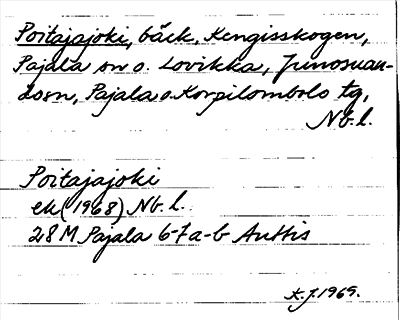 Poitajajoki, bäck, Kengisskogen,
Pajala sn o. Lovikka, Junosuan-
dosn, Pajala o. Korpilombolo tg,
Nb. l.
Poitajajoki
ek (1968) Nb. l.
28 M Pajala 6-7a-b Anttis
K.J. 1969.